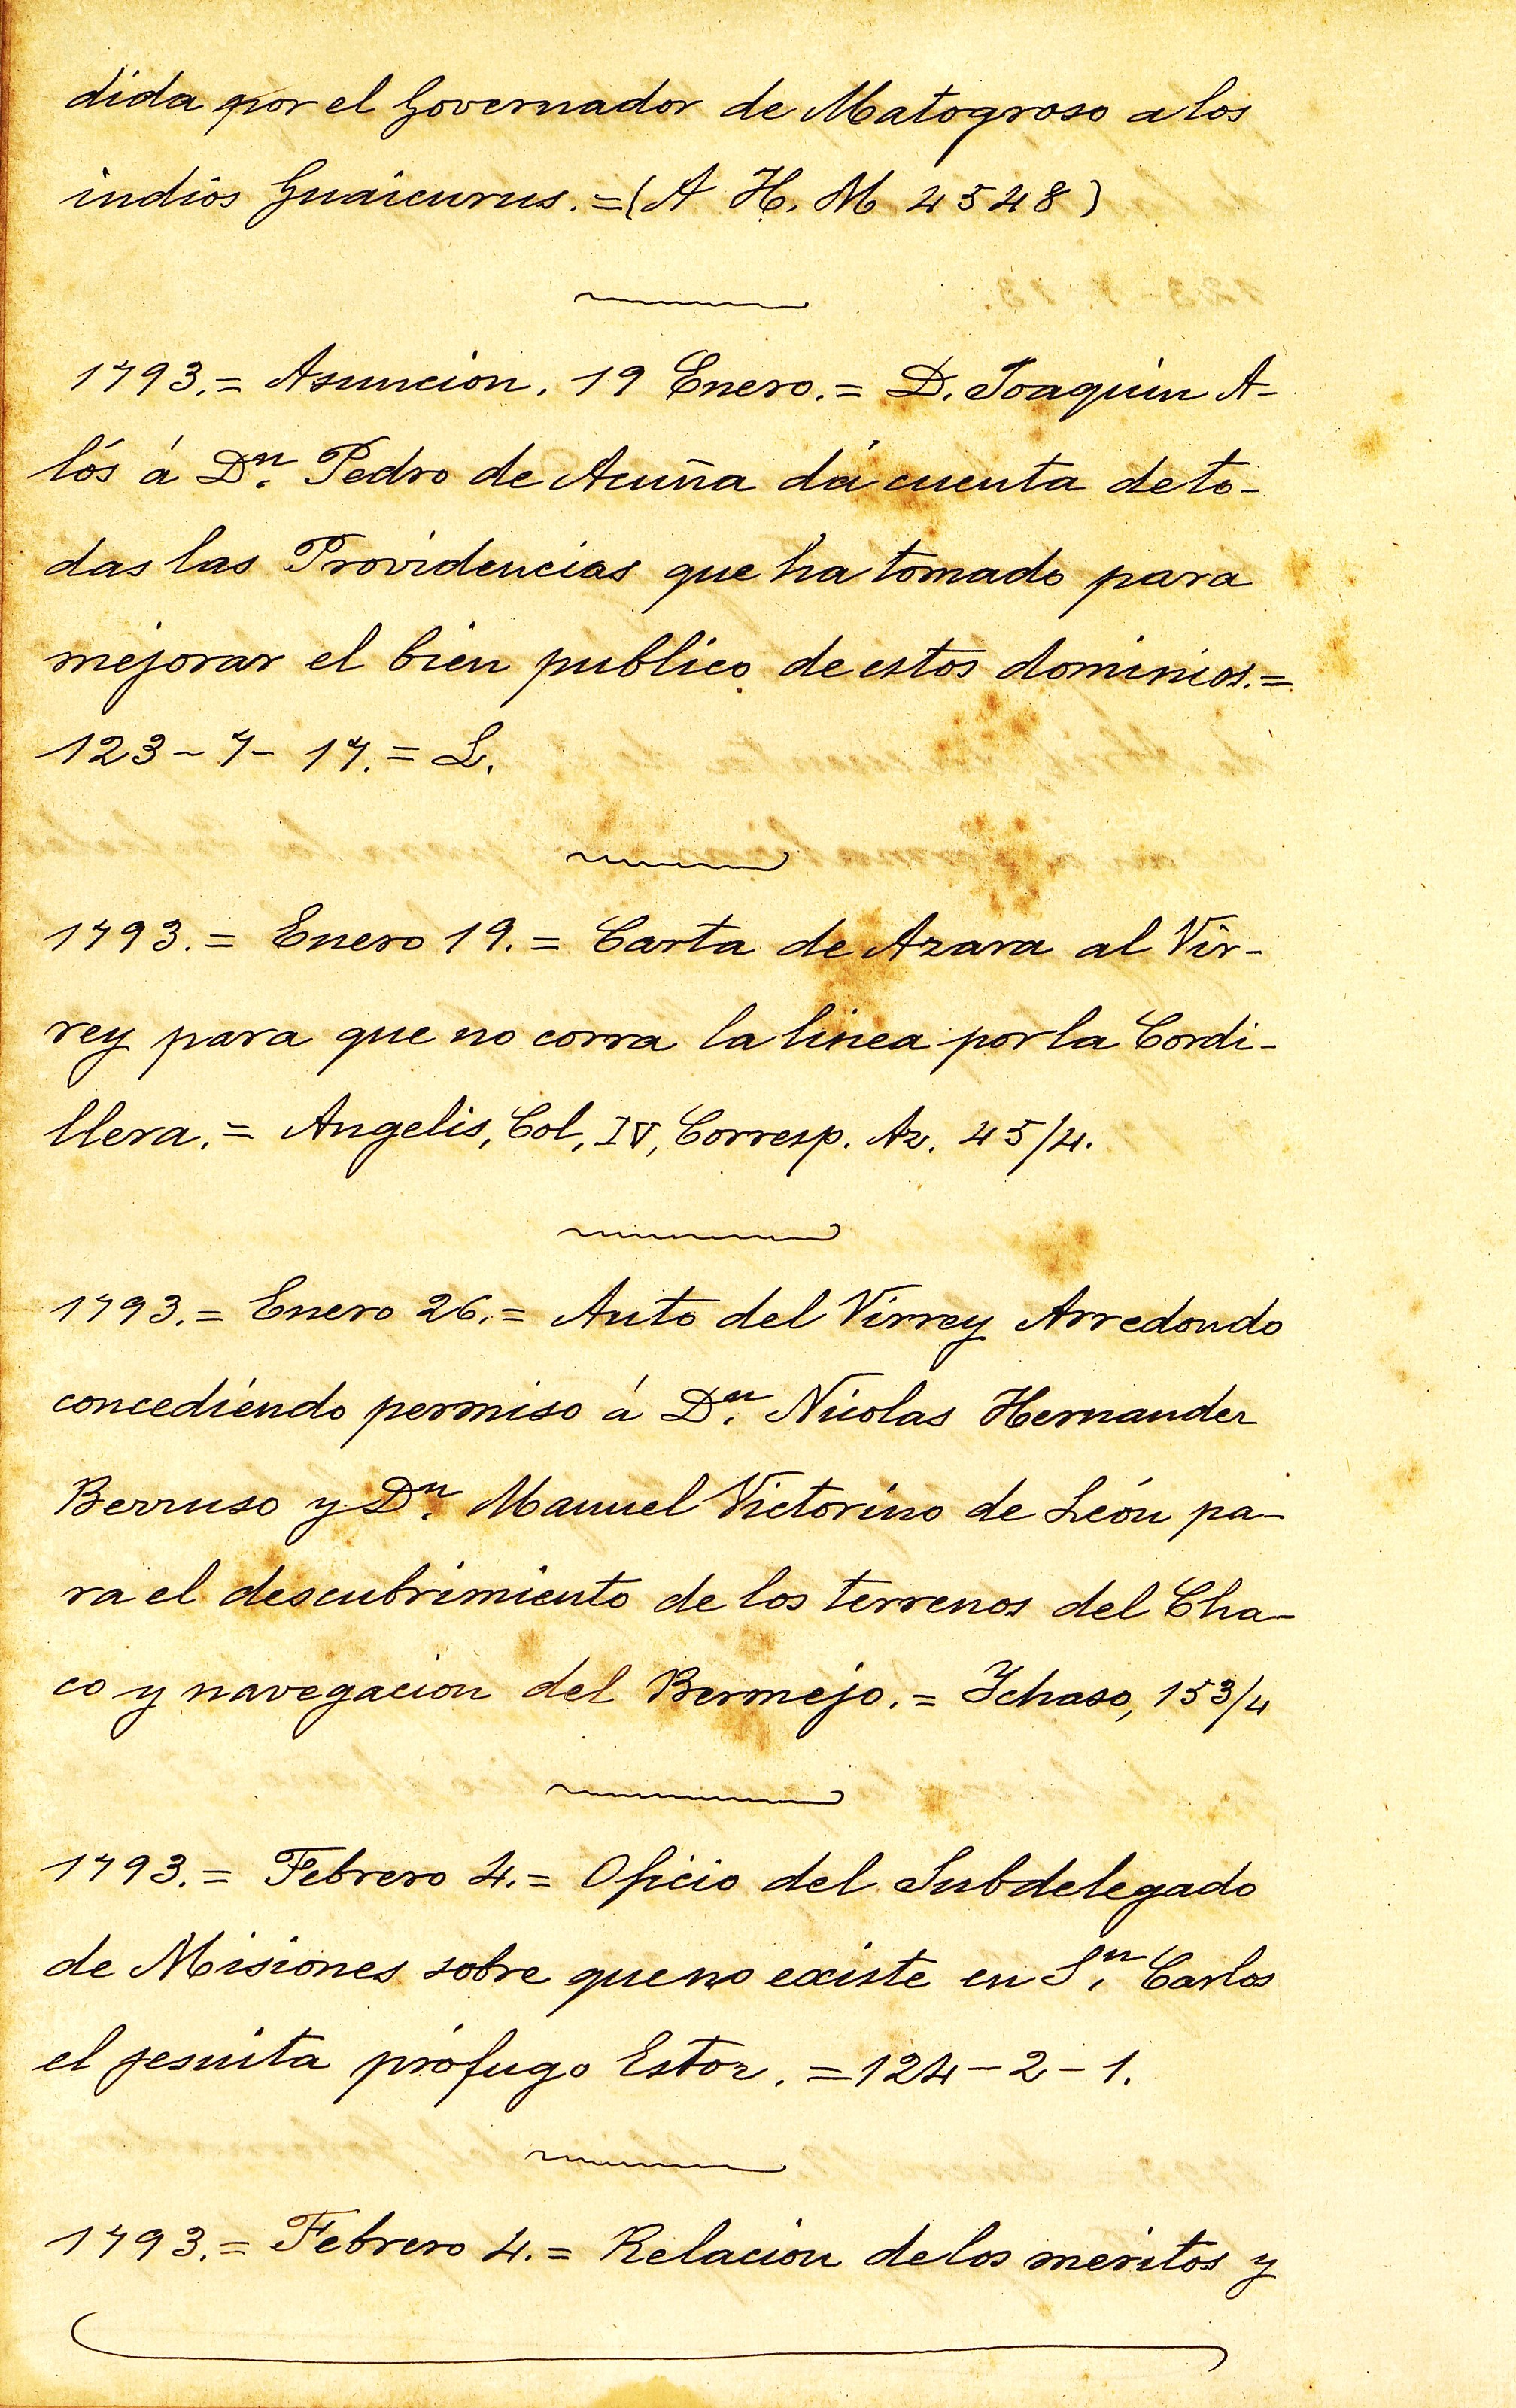 dida por el Governador de Matogroso a los
indios Guaicurus. = (A H. M 4548)
1793. = Asuncion. 19 Enero. = D. Joaquin A-
lós á Dn. Pedro de Acuña dá cuenta de to-
das las Providencias que ha tomado para
mejorar el bien publico de estos dominios. =
123 - 7 - 17. = L.
1793. = Enero 19. = Carta de Azara al Vir-
rey para que no corra la linea por la Cordi-
llera. = Angelis, Col, IV, Corresp. Az. 45/4.
1793. = Enero 26. = Auto del Virrey Arredondo
concediendo permiso á Dn. Nicolas Hernandez
Berruso y Dn. Manuel Victorino de León pa-
ra el descubrimiento de los terrenos del Cha-
co y navegacion del Bermejo. = Ichaso, 153/4
1793. = Febrero 4. = Oficio del Subdelegado
de Misiones sobre que no existe en Sn. Carlos
el jesuita prófugo Estor. = 124 - 2 - 1.
1793. = Febrero 4. = Relacion de los meritos y